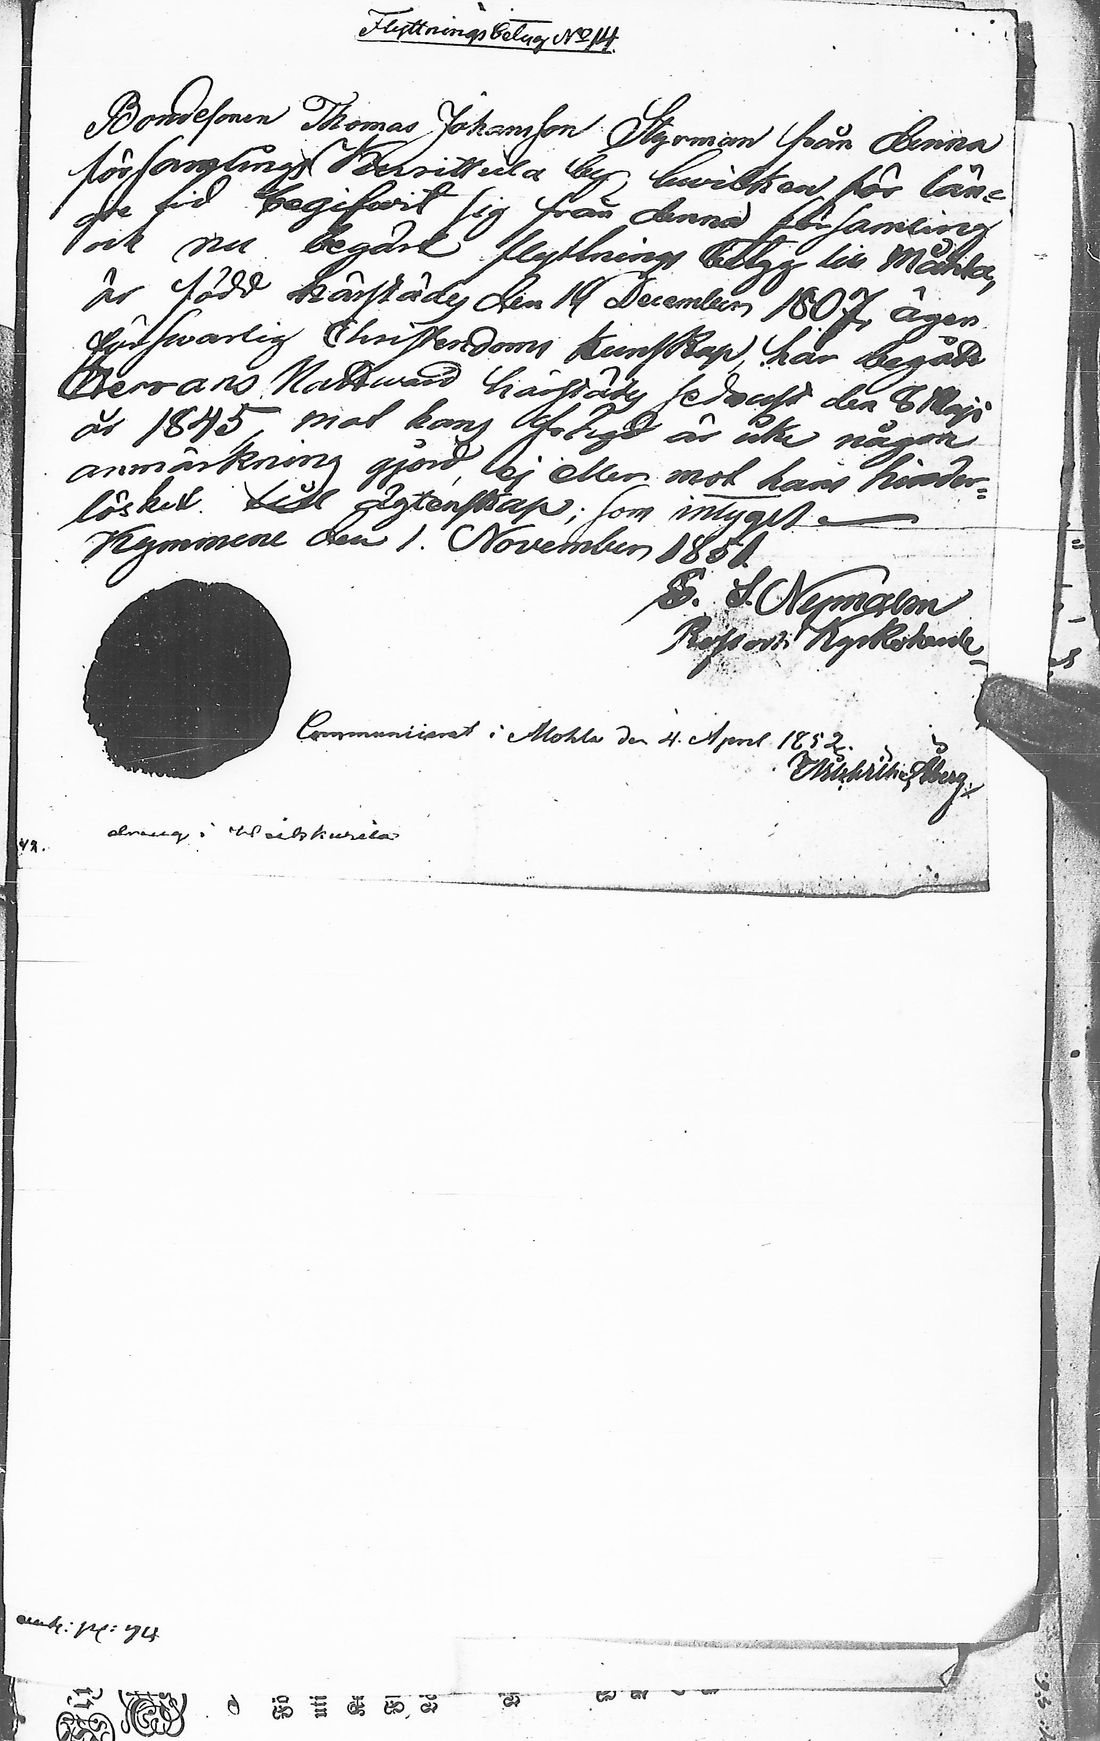 Flyttningsbetyg No 14.
Bondesonen Thomas Johansson Styrman från denna
församlings Kurittula by, hwilken för län=
gre tid begifwit sig från denna församling
och nu begärt flyttnings betyg till Måhla,
är född härstädes den 19 December 1807, äger
förswarlig Christendoms Kunskap, har begått
Herrans Nattward härstädes sednast den 8 Maji
år 1845, mot hans frejd är icke någon
anmärkning gjord, ej eller mot hans hinder=
löshet till ägtenskap; som intygat
Kymmene den 1. November 1851.
E. S. Nymalm
Past och Kyrkoherde
Communicerat i Mohla den 4. April 1852.
Åberg
dreng i
42.